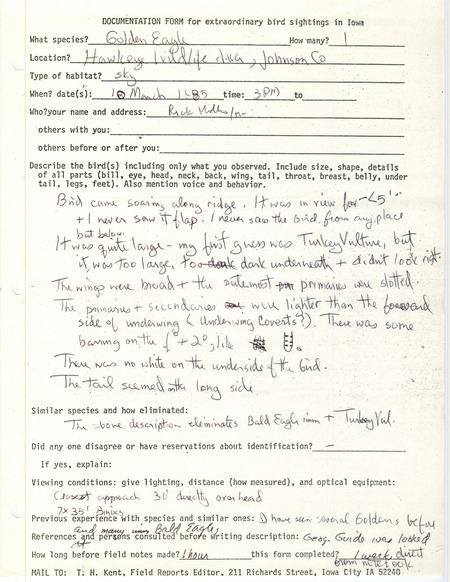 DOCUMENTATION FORM for extraordinary bird sightings in Iowa
What species? Golden Eagle How many? 1
Location? Hawkeye Wildlife Area, Johnson Co
Type of habitat? sky
When? date(s): 10 March 1985 time: 3PM to
Who? your name and address: Rick
others with you:
others before or after you:
Describe the bird(s) including only what you observed. Include size, shape, details
of all parts (bill, eye, head, neck, back, wing, tail, throat, breast, belly, under
tail, legs, feet). Also mention voice and behavior.
Bird came soaring along ridge. It was in view for ~<5'
+ I never saw it flap. I never saw the bird from any place
but below.
It was quite large - my first guess was Turkey Vulture, but
it was too large, too dark underneath + didn't look right.
The wings were broad + the outermost primaries were slotted.
The primaries + secondaries were lighter than the forward
side of underwing (underwing coverts?). There was some
barring on the 1° + 2°, like
There was no white on the underside of the bird.
The tail seemed on the long side
Similar species and how eliminated:
The above description eliminates Bald Eagle imm + Turkey Vul.
Did any one disagree or have reservations about identification? -
If yes, explain:
Viewing conditions: give lighting, distance (how measured), and optical equipment:
Closest approach 30' directly overhead
7x35 Binocs
Previous experience with species and similar ones: I have seen several Goldens before
and many imm Bald Eagle,
References and persons consulted before writing description: Geog. Guide was looked
at
How long before field notes made? 1 hour this form completed? 1 week, direct
from notebook
MAIL TO: T. H. Kent, Field Reports Editor, 211 Richards Street, Iowa City IA 52240